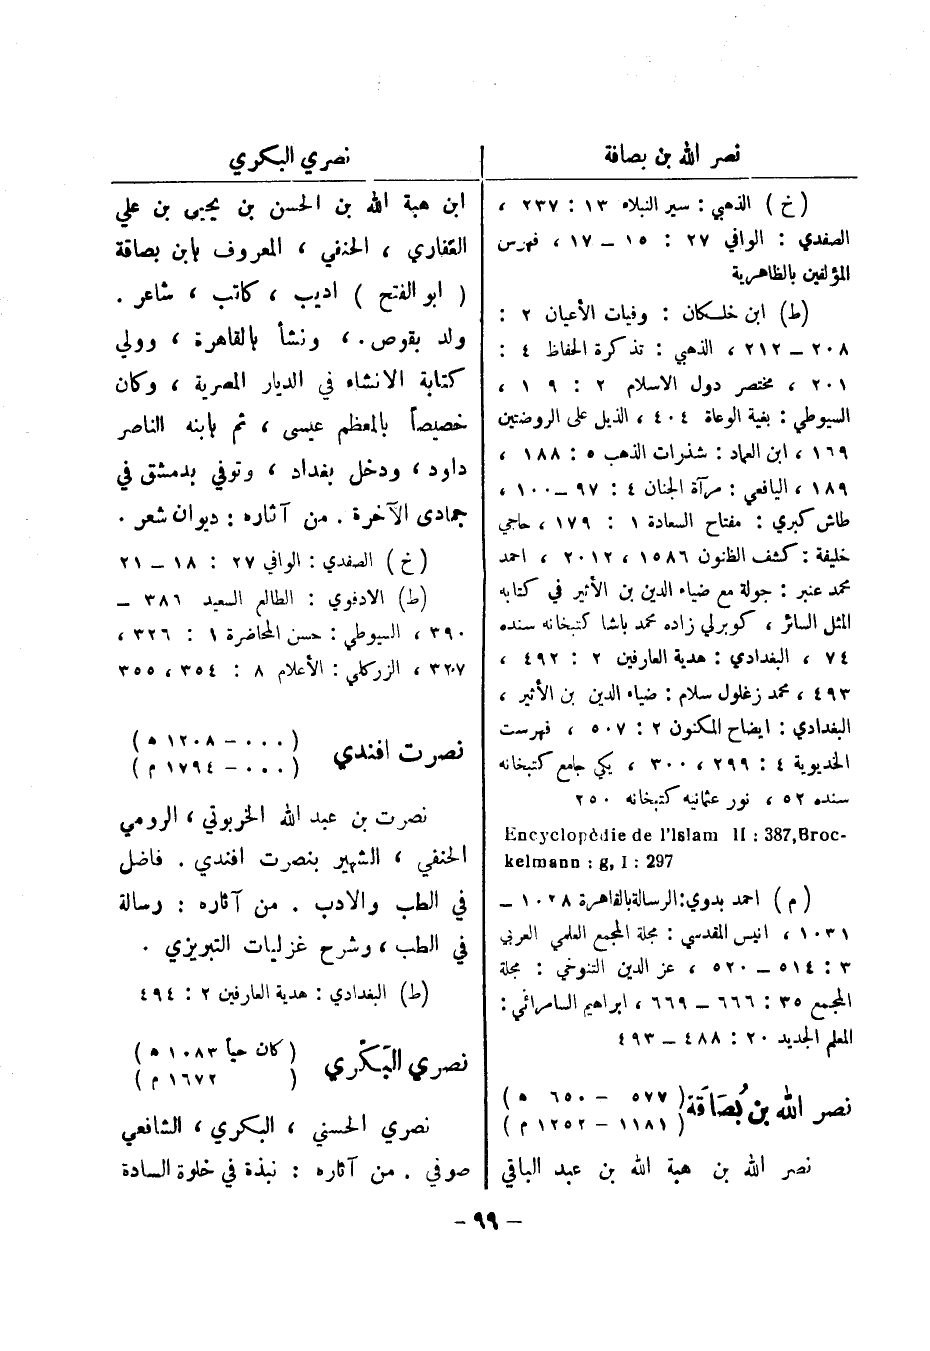 نصر الله بن بصاقة
نصري البكري
(خ) الذهبي : سير النبلاء ١٣ : ٢٣٧ ،
الصفدي : الوافي ٢٧ : ١٥ ــ ١٧ ، فهرس
المؤلفين بالظاهرية
(ط) ابن خلكان : وفيات الأعيان ٢ :
٢٠٨ ــ ٢١٢ ، الذهبي : تذكرة الحفاظ ٤ :
٢٠١ ، مختصر دول الاسلام ٢ : ٩١ ،
السيوطي : بغية الوعاة ٤٠٤ ، الذيل على الروضتين
١٦٩ ، ابن العماد : شذرات الذهب ٥ : ١٨٨ ،
١٨٩ ، اليافعي : مرآة الجنان ٤ : ٩٧ ــ ١٠٠ ،
طاش كبري : مفتاح السعادة ١ : ١٧٩ ، حاجي
خليفة : كشف الظنون ١٥٨٦ ، ٢٠١٢ ، احمد
محمد عنبر : جولة مع ضياء الدين بن الأثير في كتابه
المثل السائر ، كوبرلي زاده محمد باشا كتبخانه سنده
٧٤ ، البغدادي : هدية العارفين ٢ : ٤٩٢ ،
٤٩٣ ، محمد زغلول سلام : ضياء الدين بن الأثير ،
البغدادي : ايضاح المكنون ٢ : ٥٠٧ ، فهرست
الخديوية ٤ : ٢٩٩ ، ٣٠٠ ، يكي جامع كتبخانه
سنده ٥٢ ، نور عثمانيه كتبخانه ٢٥٠
Encyclopédie de l'Islam II : 387,Broc-
kelmann : g, I : 297
(م) احمد بدوي: الرسالة بالقاهرة ١٠٢٨ ــ
١٠٣١ ، انيس المقدسي : مجلة المجمع العلمي العربي
٣ : ٥١٤ ــ ٥٢٠ ، عز الدين التنوخي : مجلة
المجمع ٣٥ : ٦٦٦ ــ ٦٦٩ ، ابراهيم السامرائي :
المعلم الجديد ٢٠ : ٤٨٨ ــ ٤٩٣
نصر الله بن بُصَاقة (٥٧٧ – ٦٥٠ ه)
(١١٨١ – ١٢٥٢ م)
نصر الله بن هبة الله بن عبد الباقي
ابن هبة الله بن الحسن بن يحيى بن علي
الغفاري ، الحنفي ، المعروف بابن بصاقة
( ابو الفتح ) اديب ، كاتب ، شاعر .
ولد بقوص ، ونشأ بالقاهرة ، وولي
كتابة الانشاء في الديار المصرية ، وكان
خصيصاً بالمعظم عيسى ، ثم بابنه الناصر
داود ، ودخل بغداد ، وتوفي بدمشق في
جمادى الآخرة . من آثاره : ديوان شعر .
(خ) الصفدي : الوافي ٢٧ : ١٨ ــ ٢١
(ط) الادفوي : الطالع السعيد ٣٨٦ ــ
٣٩٠ ، السيوطي : حسن المحاضرة ١ : ٣٢٦ ،
٣٢٠٧ ، الزركلي : الأعلام ٨ : ٣٥٤ ، ٣٥٥
نصرت افندي (٠٠٠ – ١٢٠٨ ه)
(٠٠٠ – ١٧٩٤ م)
نصرت بن عبد الله الخربوتي ، الرومي
الحنفي ، الشهير بنصرت افندي . فاضل
في الطب والادب . من آثاره : رسالة
في الطب ، وشرح غزليات التبريزي .
(ط) البغدادي : هدية العارفين ٢ : ٤٩٤
نصري البَكْري (كان حياً ١٠٨٣ ه)
( ١٦٧٢ م)
نصري الحسني ، البكري ، الشافعي
صوفي . من آثاره : نبذة في خلوة السادة
– ٩٩ –